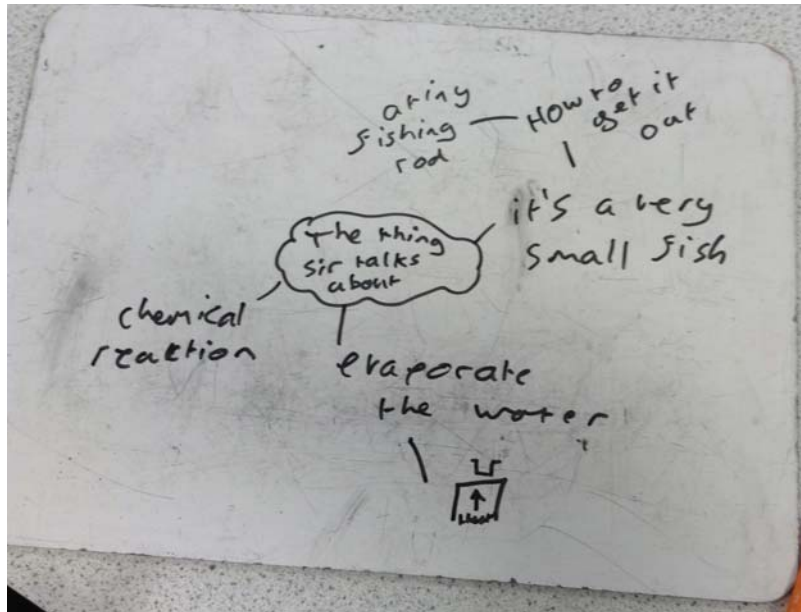 a tiny
fishing
rod
How to
get it
out
it's a very
small fish
The thing
sir talks
about
chemical
reaktion
evaporate
the water